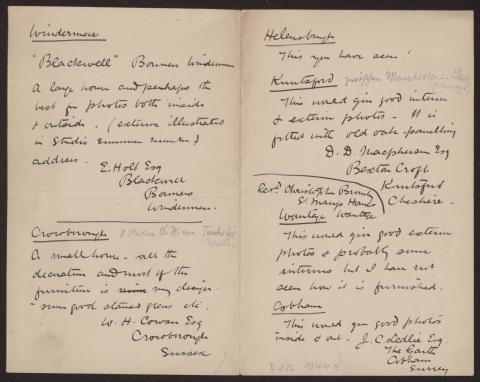 Windermere
"Blackwell" Bowness Windermere
A large house and perhaps the
best for photos both inside
& outside. (exterior illustrated
in Studio Summer number)
address.
E. Holt Esq
Blackwell
Bowness
Windermere.
Crowborough
A small house - all the
decoration and most of the
furniture is my design.
- some good stained glass etc.
W. H. Cowan Esq
Crowborough
Sussex
Helensburgh
This you have seen!
Knutsford
This would give good interior
& exterior photos - It is
fitted with old oak-panelling
D. D. Macpherson Esq
Bexton Croft
Knutsford
Cheshire.
Rev. Christopher
St Mary's Home
Wantage Wantage
This would give good exterior
photos & probably some
interiors but I have not
seen how it is furnished.
Cobham
This would give good photos
inside & out. J. C. Ledlie Esq.
The Garth
Cobham
Surrey